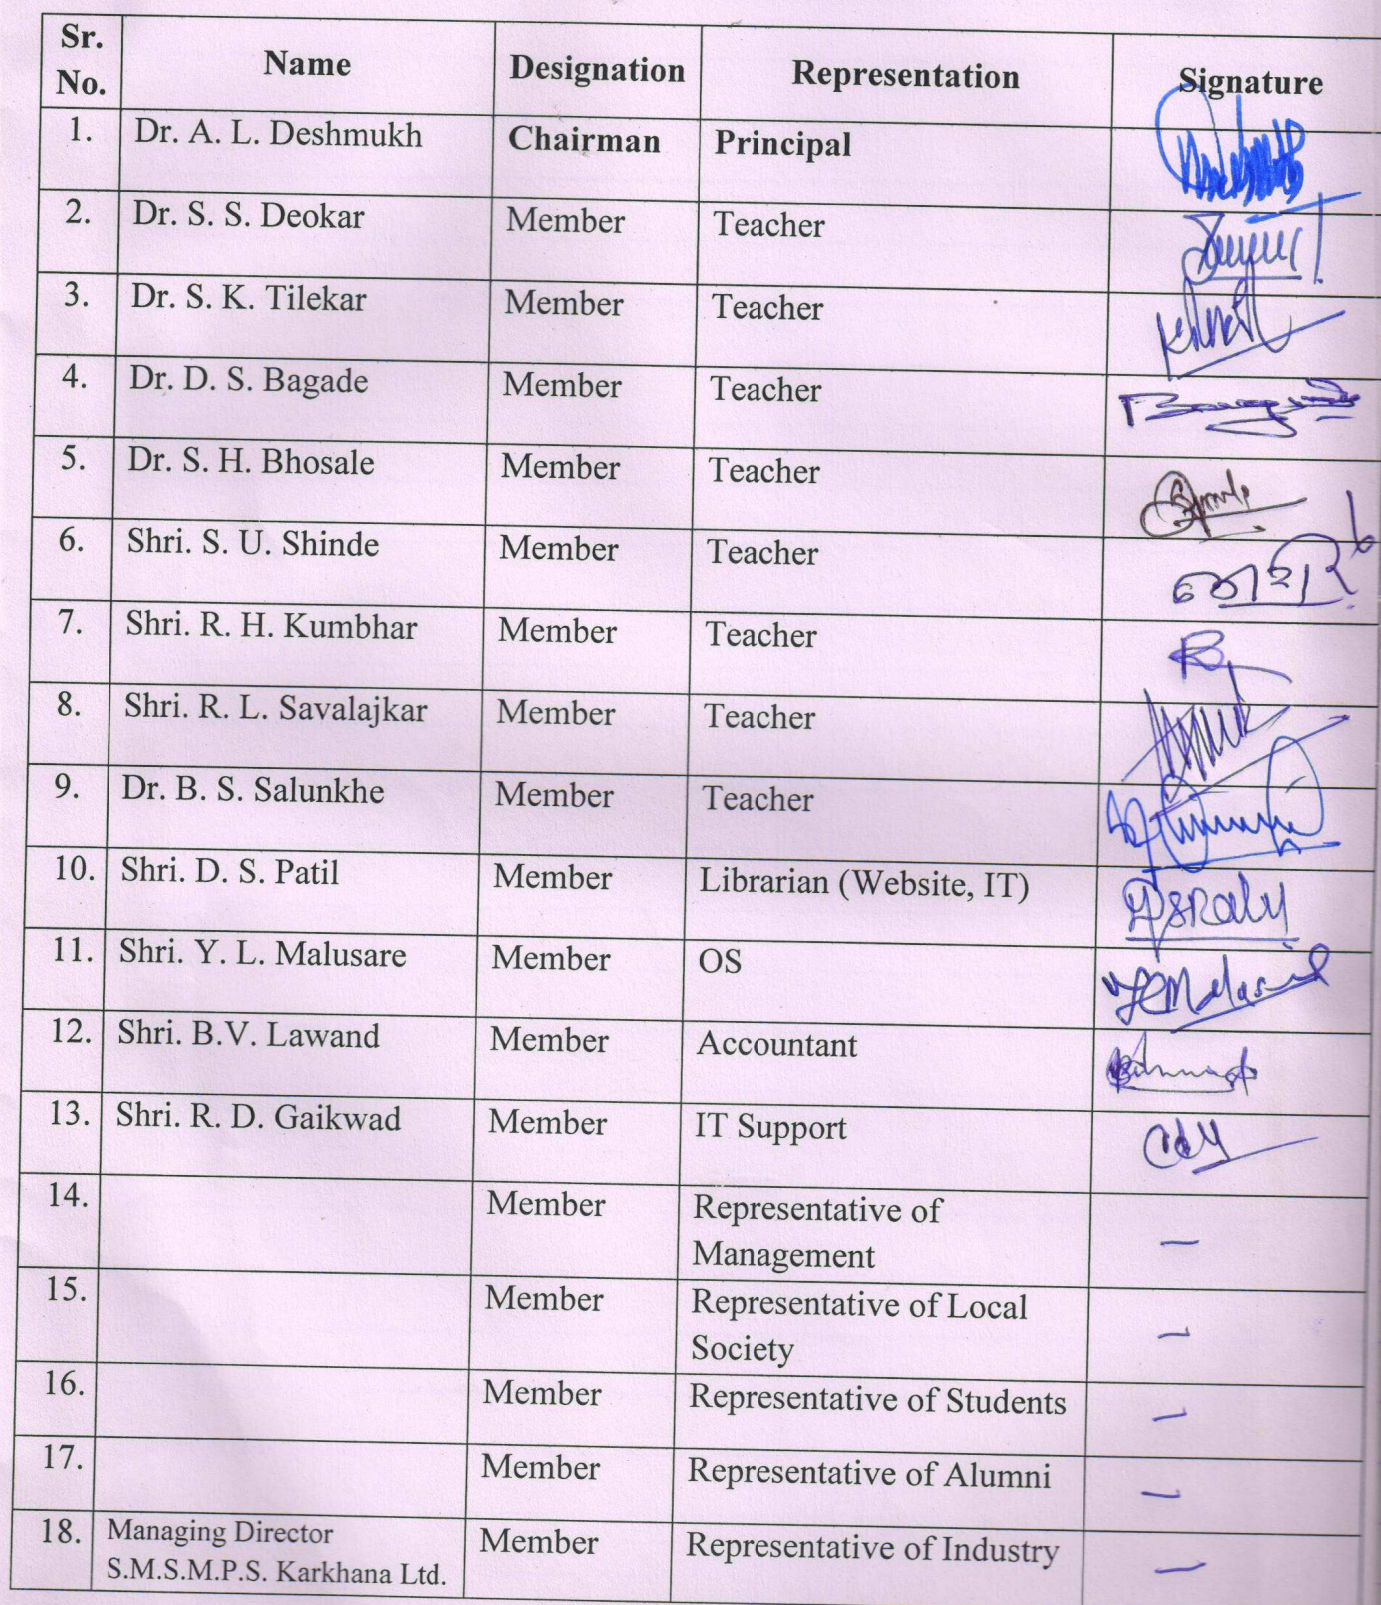 Sr. No. Name Designation Representation Signature
1. Dr. A. L. Deshmukh Chairman Principal
2. Dr. S. S. Deokar Member Teacher
3. Dr. S. K. Tilekar Member Teacher
4. Dr. D. S. Bagade Member Teacher
5. Dr. S. H. Bhosale Member Teacher
6. Shri. S. U. Shinde Member Teacher
7. Shri. R. H. Kumbhar Member Teacher
8. Shri. R. L. Savalajkar Member Teacher
9. Dr. B. S. Salunkhe Member Teacher
10. Shri. D. S. Patil Member Librarian (Website, IT)
11. Shri. Y. L. Malusare Member OS
12. Shri. B.V. Lawand Member Accountant
13. Shri. R. D. Gaikwad Member IT Support
14. Member Representative of
Management –
15. Member Representative of Local
Society –
16. Member Representative of Students –
17. Member Representative of Alumni –
18. Managing Director Member Representative of Industry –
S.M.S.M.P.S. Karkhana Ltd.